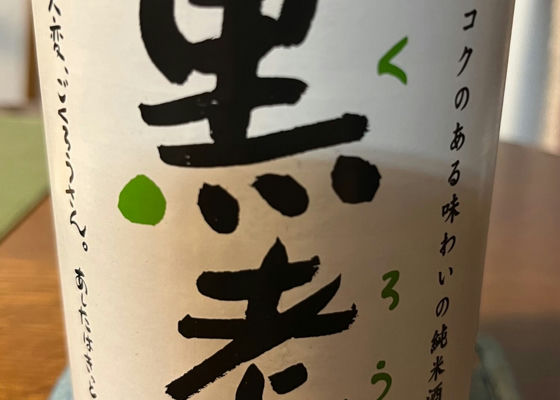 コクのある味わいの純米酒
くろう
黒老
ごくろうさん。あしたはきっと